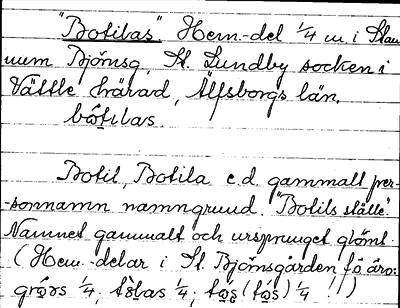 "Botilas" Hem.-del 1/4 m. i Stau
num Björnsg, St. Lundby socken i
Vättle härad, Älfsborgs län.
bótilas.
Botil, Botila e.d. gammalt per-
-sonnamn namngrund. "Botils ställe".
Namnet gammalt och ursprunget glömt.
(Hem.-delar i St. Björnsgården få äro:
1/4, 1/4, 1/4 !!)